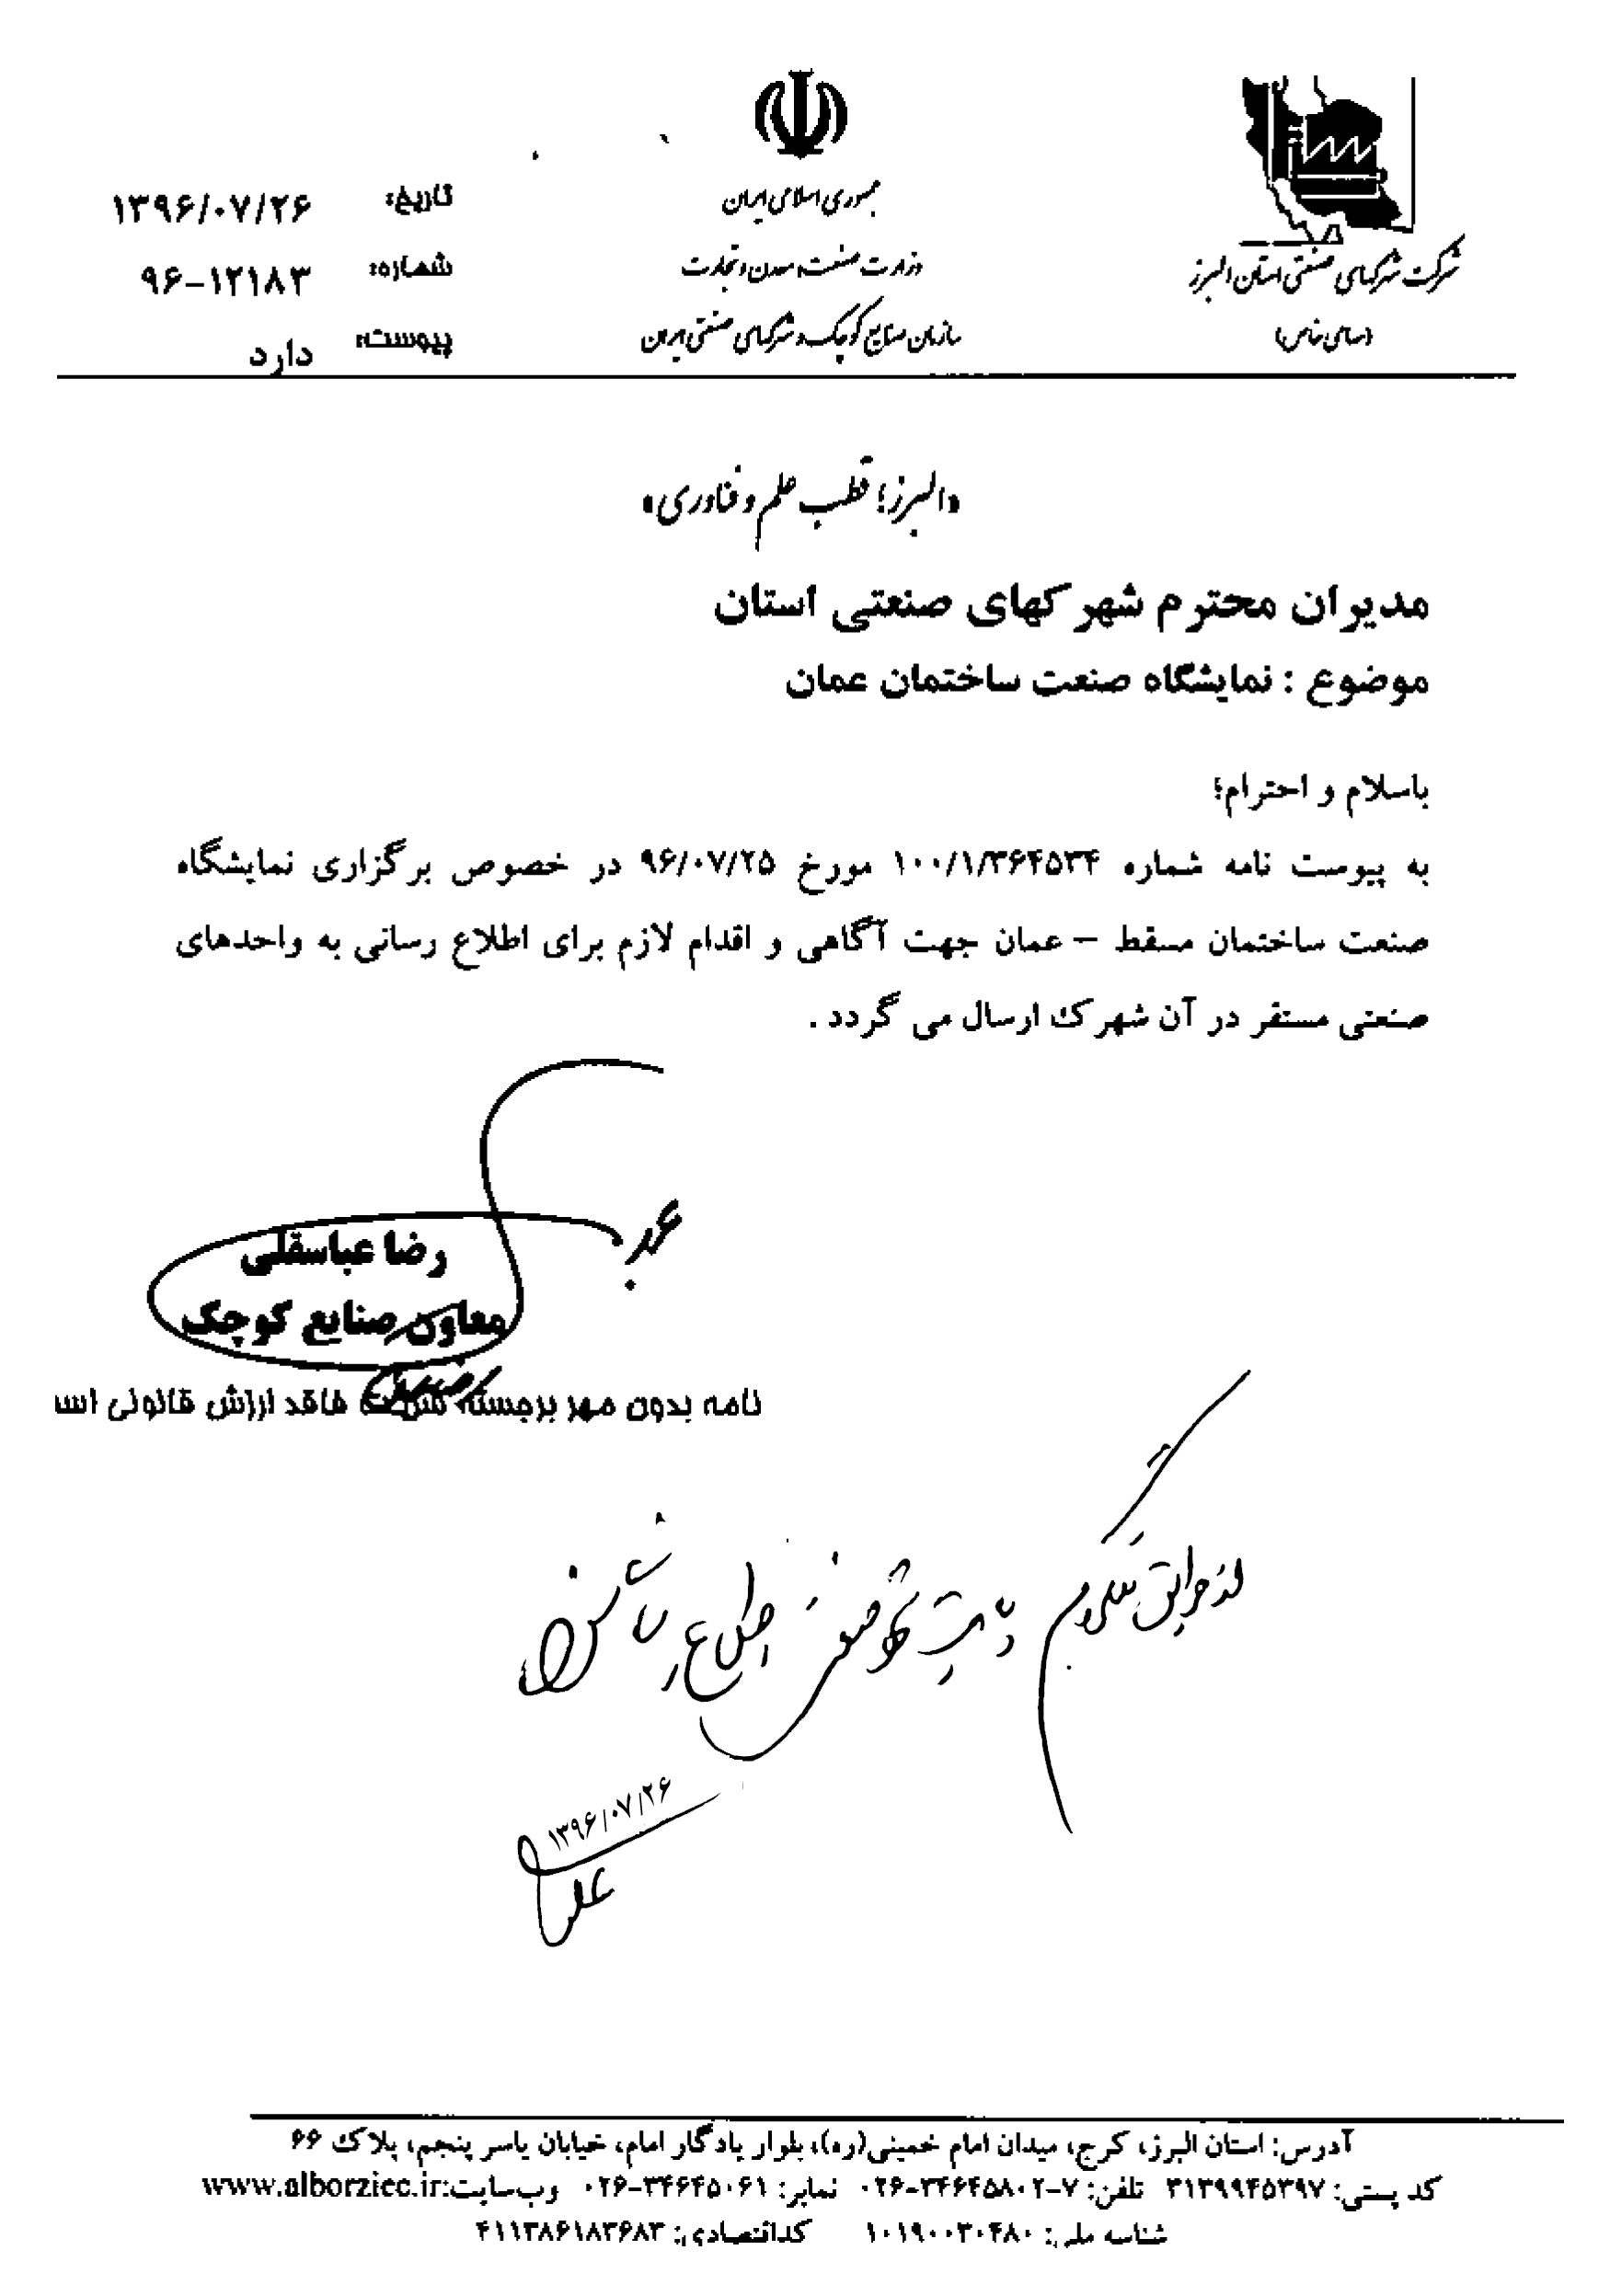 جمهوری اسلامی ایران
وزارت صنعت، معدن و تجارت
سازمان صنایع کوچک و شهرکهای صنعتی ایران
شرکت شهرکهای صنعتی استان البرز
(سهامی خاص)
تاریخ: ۱۳۹۶/۰۷/۲۶
شماره: ۹۶-۱۲۱۸۳
پیوست: دارد
«البرز؛ قطب علم و فناوری»
مدیران محترم شهرکهای صنعتی استان
موضوع : نمایشگاه صنعت ساختمان عمان
باسلام و احترام؛
به پیوست نامه شماره ۱۰۰/۱/۳۶۴۵۳۴ مورخ ۹۶/۰۷/۲۵ در خصوص برگزاری نمایشگاه
صنعت ساختمان مسقط – عمان جهت آگاهی و اقدام لازم برای اطلاع رسانی به واحدهای
صنعتی مستقر در آن شهرک ارسال می گردد .
رضا عباسقلی
معاون صنایع کوچک
نامه بدون مهر برجسته شرکت فاقد ارزش قانونی اس
اطلاع
۱۳۹۶/۰۷/۲۶
آدرس: استان البرز، کرج، میدان امام خمینی(ره)، بلوار یادگار امام، خیابان یاسر پنجم، پلاک ۶۶
کد پستی: ۳۱۳۹۹۴۵۳۹۷ تلفن: ۷-۰۲۶-۳۴۶۴۵۸۰۲ نمابر: ۰۲۶-۳۴۶۴۵۰۶۱ وب‌سایت:www.alborziec.ir
شناسه ملی: ۱۰۱۹۰۰۳۰۴۸۰ کداقتصادی: ۴۱۱۳۸۶۱۸۳۶۸۳